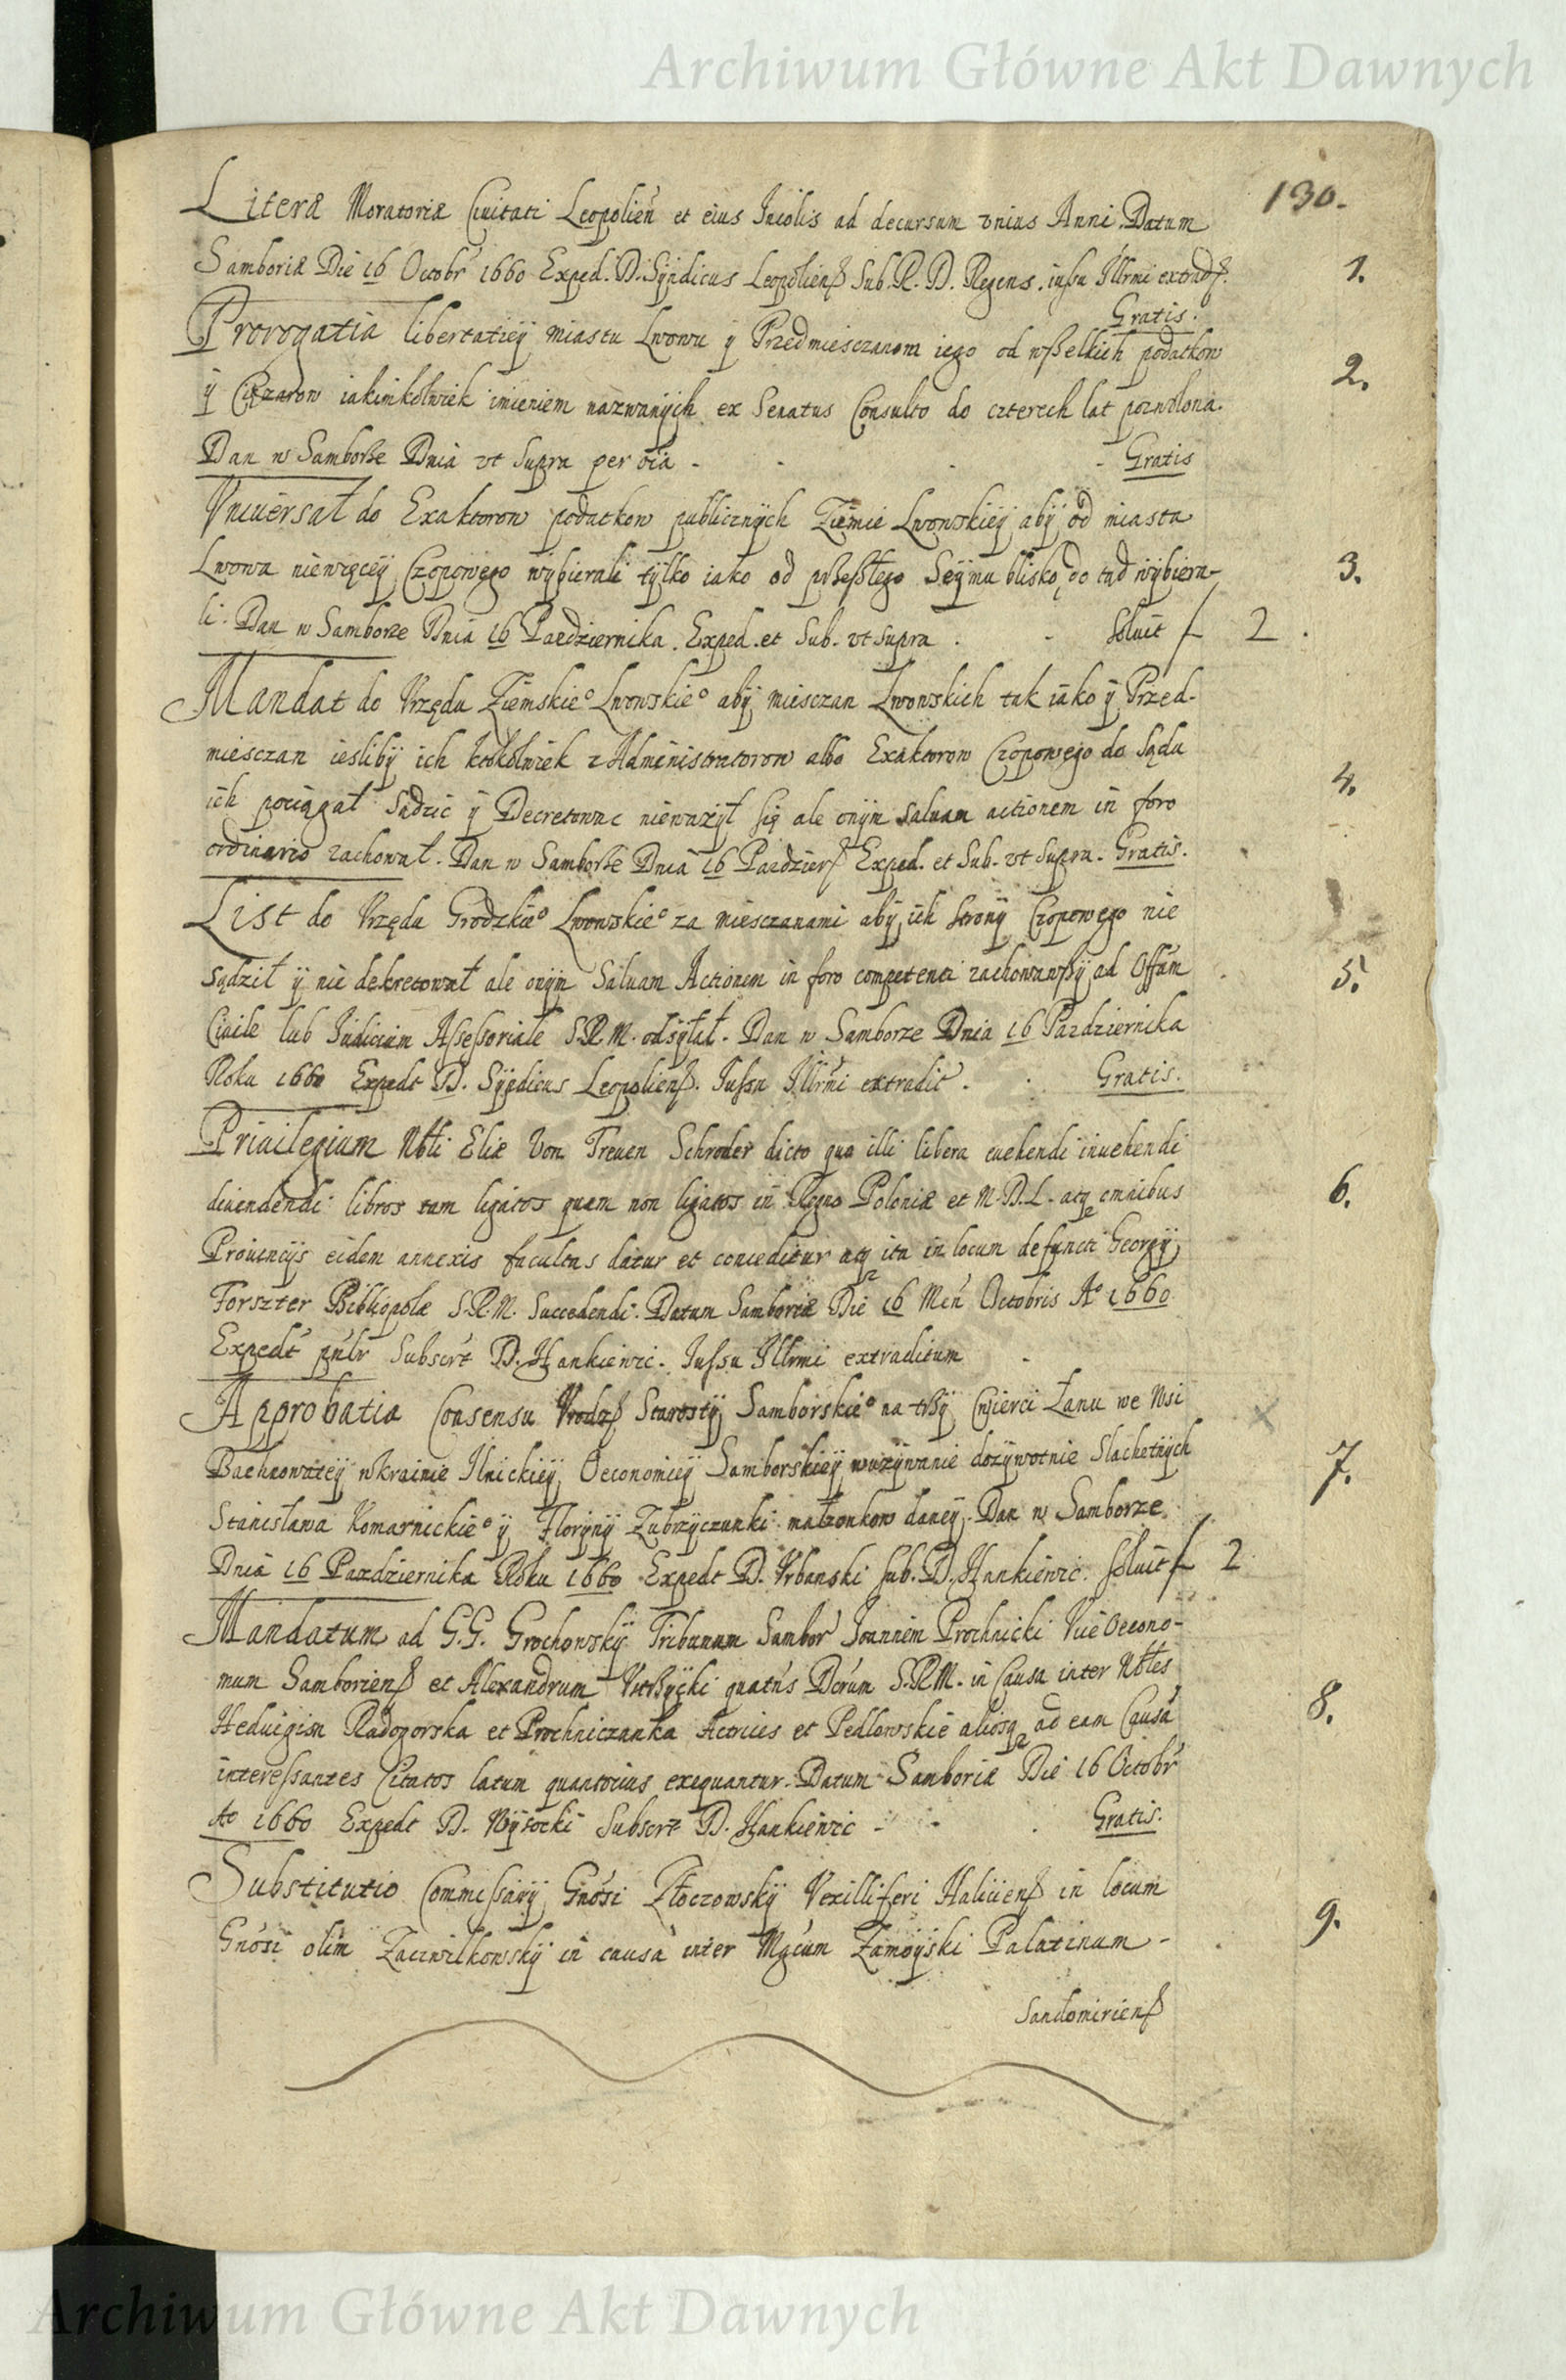 Archiwum Główne Akt Dawnych
130.
Literæ Moratoriæ Ciuitati Leopolień et eius Incolis ad decursum vnius Anni. Datum
Samboriæ Die 16 Octobr 1660 Exped. D. Syndicus Leopolienß Sub. R. D. Regens. iussu Illrmi extradß.
Gratis.
1.
Prorogatia libertatiey miastu Lwowu y Przedmiesczanom iego od wßelkich podatkow
y Ciężarow iakimkolwiek imieniem nazwanych ex Senatus Consulto do czterech lat pozwolona.
Dan w Samborze Dnia vt supra per oia - - - - Gratis
2.
Vniuersał do Exaktorow podatkow publicznych Ziemie Lwowskiey aby od miasta
Lwowa niewięcey Czopowego wybierali tylko iako od przeßłego Seymu blisko do tąd wybiera-
li. Dan w Samborze Dnia 16 Października. Exped. et Sub. vt supra . - Soluit f 2 .
3.
Mandat do Vrzędu Ziemskie° Lwowskie° aby miesczan Lwowskich tak iako y Przed-
miesczan iesliby ich ktokolwiek z Administratorow albo Exaktorow Czopowego do Sądu
ich pociągał sądzić y Decretowac nieważył się ale onym saluam actionem in foro
ordinario zachował. Dan w Samborze Dnia 16 Paździerß Exped. et Sub. vt supra. Gratis.
4.
List do Vrzędu Grodzkie° Lwowskie° za miesczanami aby ich strony Czopowego nie
sądził y nie dekretował ale onym Saluam Actionem in foro competenti zachowawßy ad Offm
Ciuile lub Iudicium Assessoriale S.R.M. odsyłał. Dan w Samborze Dnia 16 Pazdziernika
Roku 1660 Expedt D. Syndicus Leopolienß. Iussu Illrmi extradit. . Gratis.
5.
Priuilegium Nbli Eliæ Von Treuen Schroder dicto quo illi libera euehendi inuehendi
diuendendi libros tam ligatos quam non ligatos in Regno Poloniæ et M.D.L. atq omnibus
Prouincijs eidem annexis facultas datur et conceditur atq ita in locum defuncti Georgy
Forszter Bibliopolæ S.R.M. Succedendi. Datum Samboriæ Die 16 Meń Octobris A° 1660
Expedt Subscrt D. Hankiewic. Iussu Illrmi extraditum .
6.
Approbatia Consensu Vrodzß Starosty Samborskie° na trzy Cwierci Łanu we Wsi
Bachnowatey w krainie Ilnickiey Oeconomiey Samborskiey w używanie dożywotnie Slachetnych
Stanisława Komarnickie° y Floryny Zubrzyczanki małżonkow daney. Dan w Samborze
Dnia 16 Pazdziernika Roku 1660 Expedt D. Vrbanski sub. D. Hankiewic. soluit f 2
7.
Mandatum ad G.G. Grochowsky Tribunum Sambor Ioannem Prochnicki Vice Oecono-
mum Samborienß et Alexandrum quatńs Dcrum S.R.M. in Causa inter Nbles
Heduigim Radogorska et Prochniczanka Actrices et Pedlowskie aliosq ad eam Causa
interessantes Citatos latum quantocius exequantur. Datum Samboriæ Die 16 Octobr
A° 1660 Expedt D. Wysocki Subscrt D. Hankiewic - - . Gratis.
8.
Substitutio Commissary Gnosi Złoczowsky Vexilliferi Halicienß in locum
Gnosi olim Zacwilkowsky in causa inter Mgcum Zamoyski Palatinum -
9.
Sandomirienß
Archiwum Główne Akt Dawnych